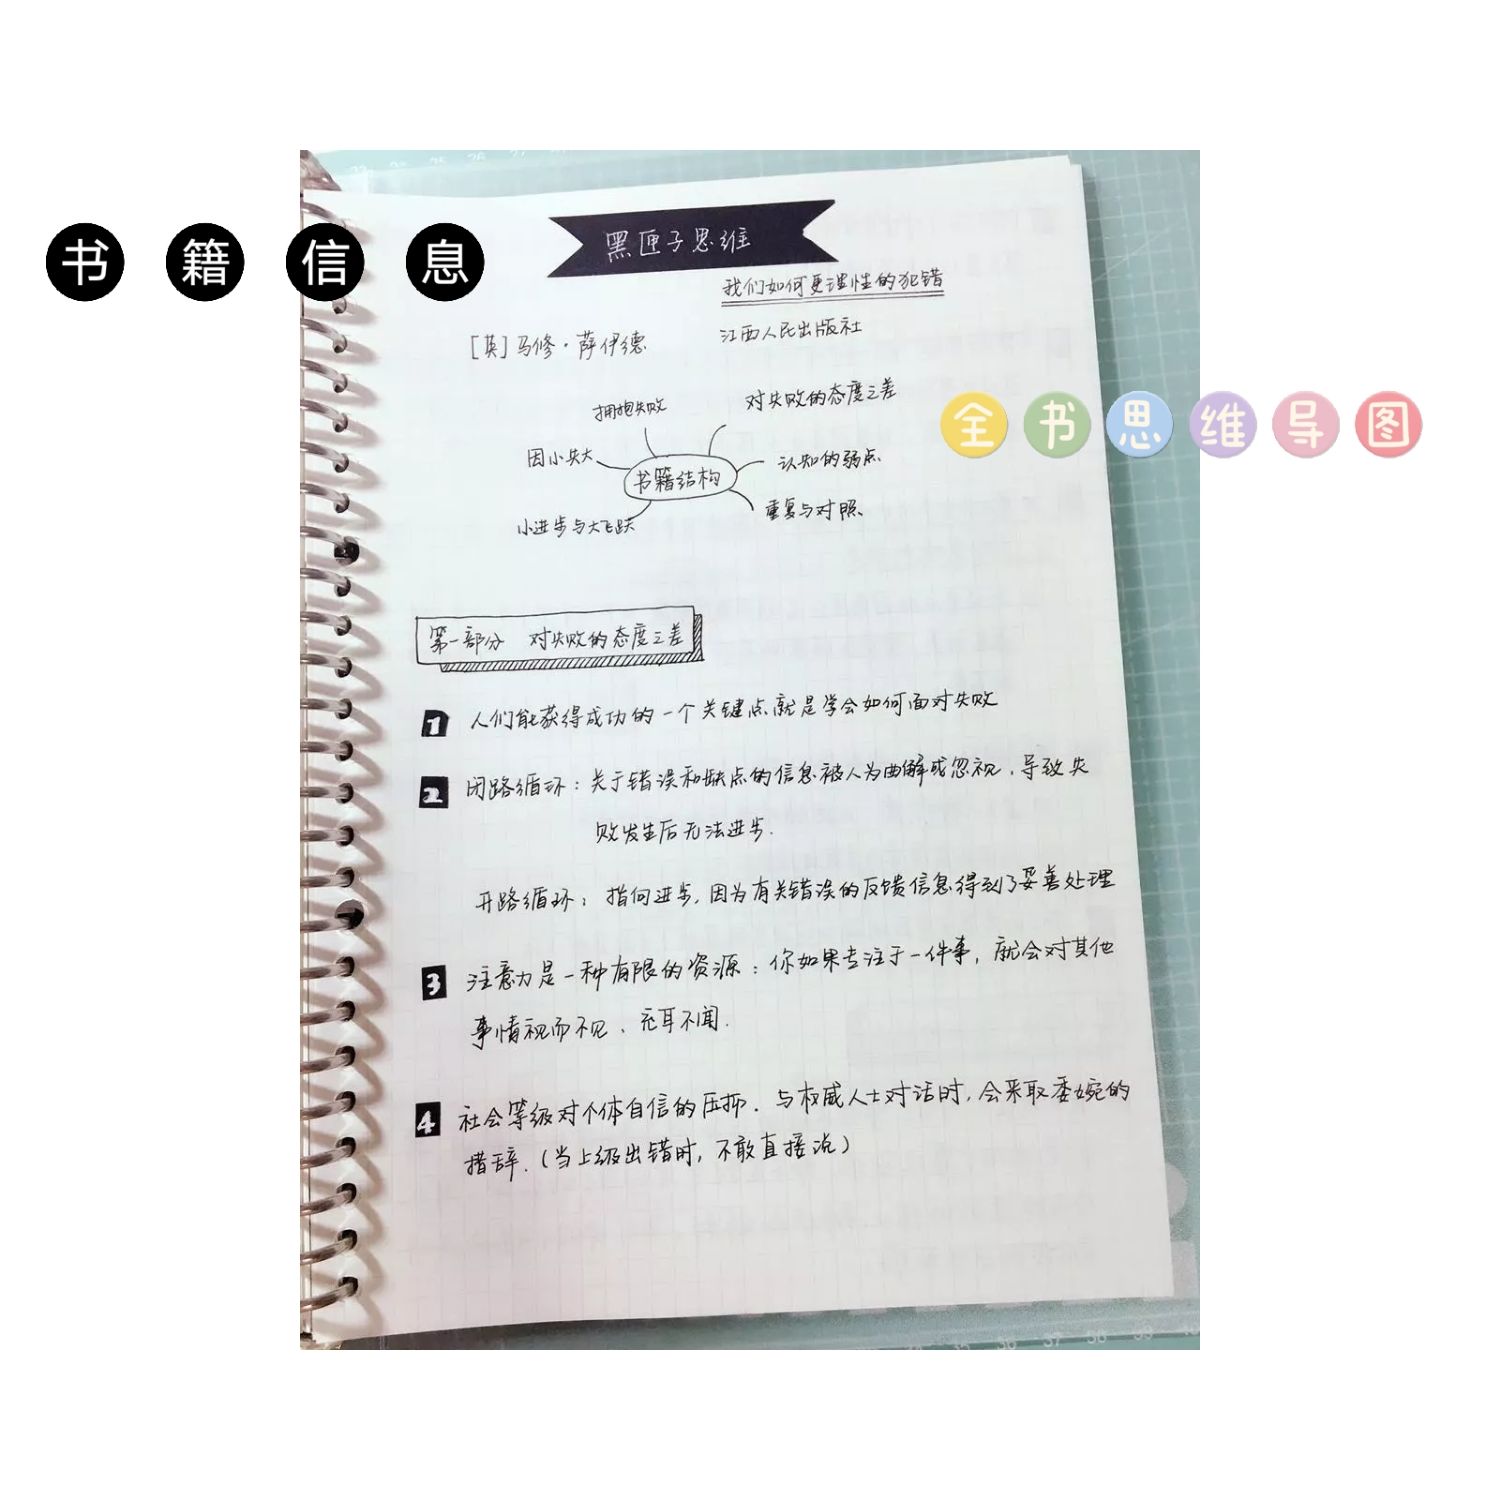 书籍信息
黑匣子思维
我们如何更理性的犯错
[英]马修·萨伊德
江西人民出版社
全书思维导图
拥抱失败
对失败的态度之差
因小失大
认知的弱点
书籍结构
小进步与大飞跃
重复与对照
第一部分 对失败的态度之差
1 人们能获得成功的一个关键点就是学会如何面对失败
2 闭路循环:关于错误和缺点的信息被人为曲解或忽视,导致失
败发生后无法进步.
开路循环:指向进步,因为有关错误的反馈信息得到了妥善处理
3 注意力是一种有限的资源:你如果专注于一件事,就会对其他
事情视而不见、充耳不闻.
4 社会等级对个体自信的压抑.与权威人士对话时,会采取委婉的
措辞.(当上级出错时,不敢直接说)